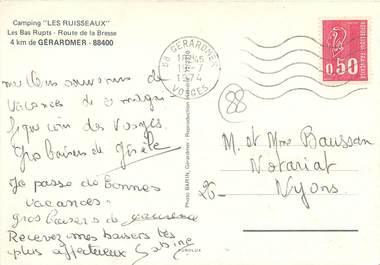 Camping "LES RUISSEAUX"
Les Bas Rupts - Route de la Bresse
4 km de GÉRARDMER - 88400
88 GERARDMER
1974
VOSGES
0,50
88
meilleurs souvenirs de
vacances de ce magni
fique coin des Vosges
Gros baisers de
Je passe de bonnes
vacances.
gros baisers de
Recevez mes baisers les
plus affectueux Sabine
Photo BARIN, Gérardmer - Reproduction
M. et Mme Baussan
Notariat
26 - Nyons